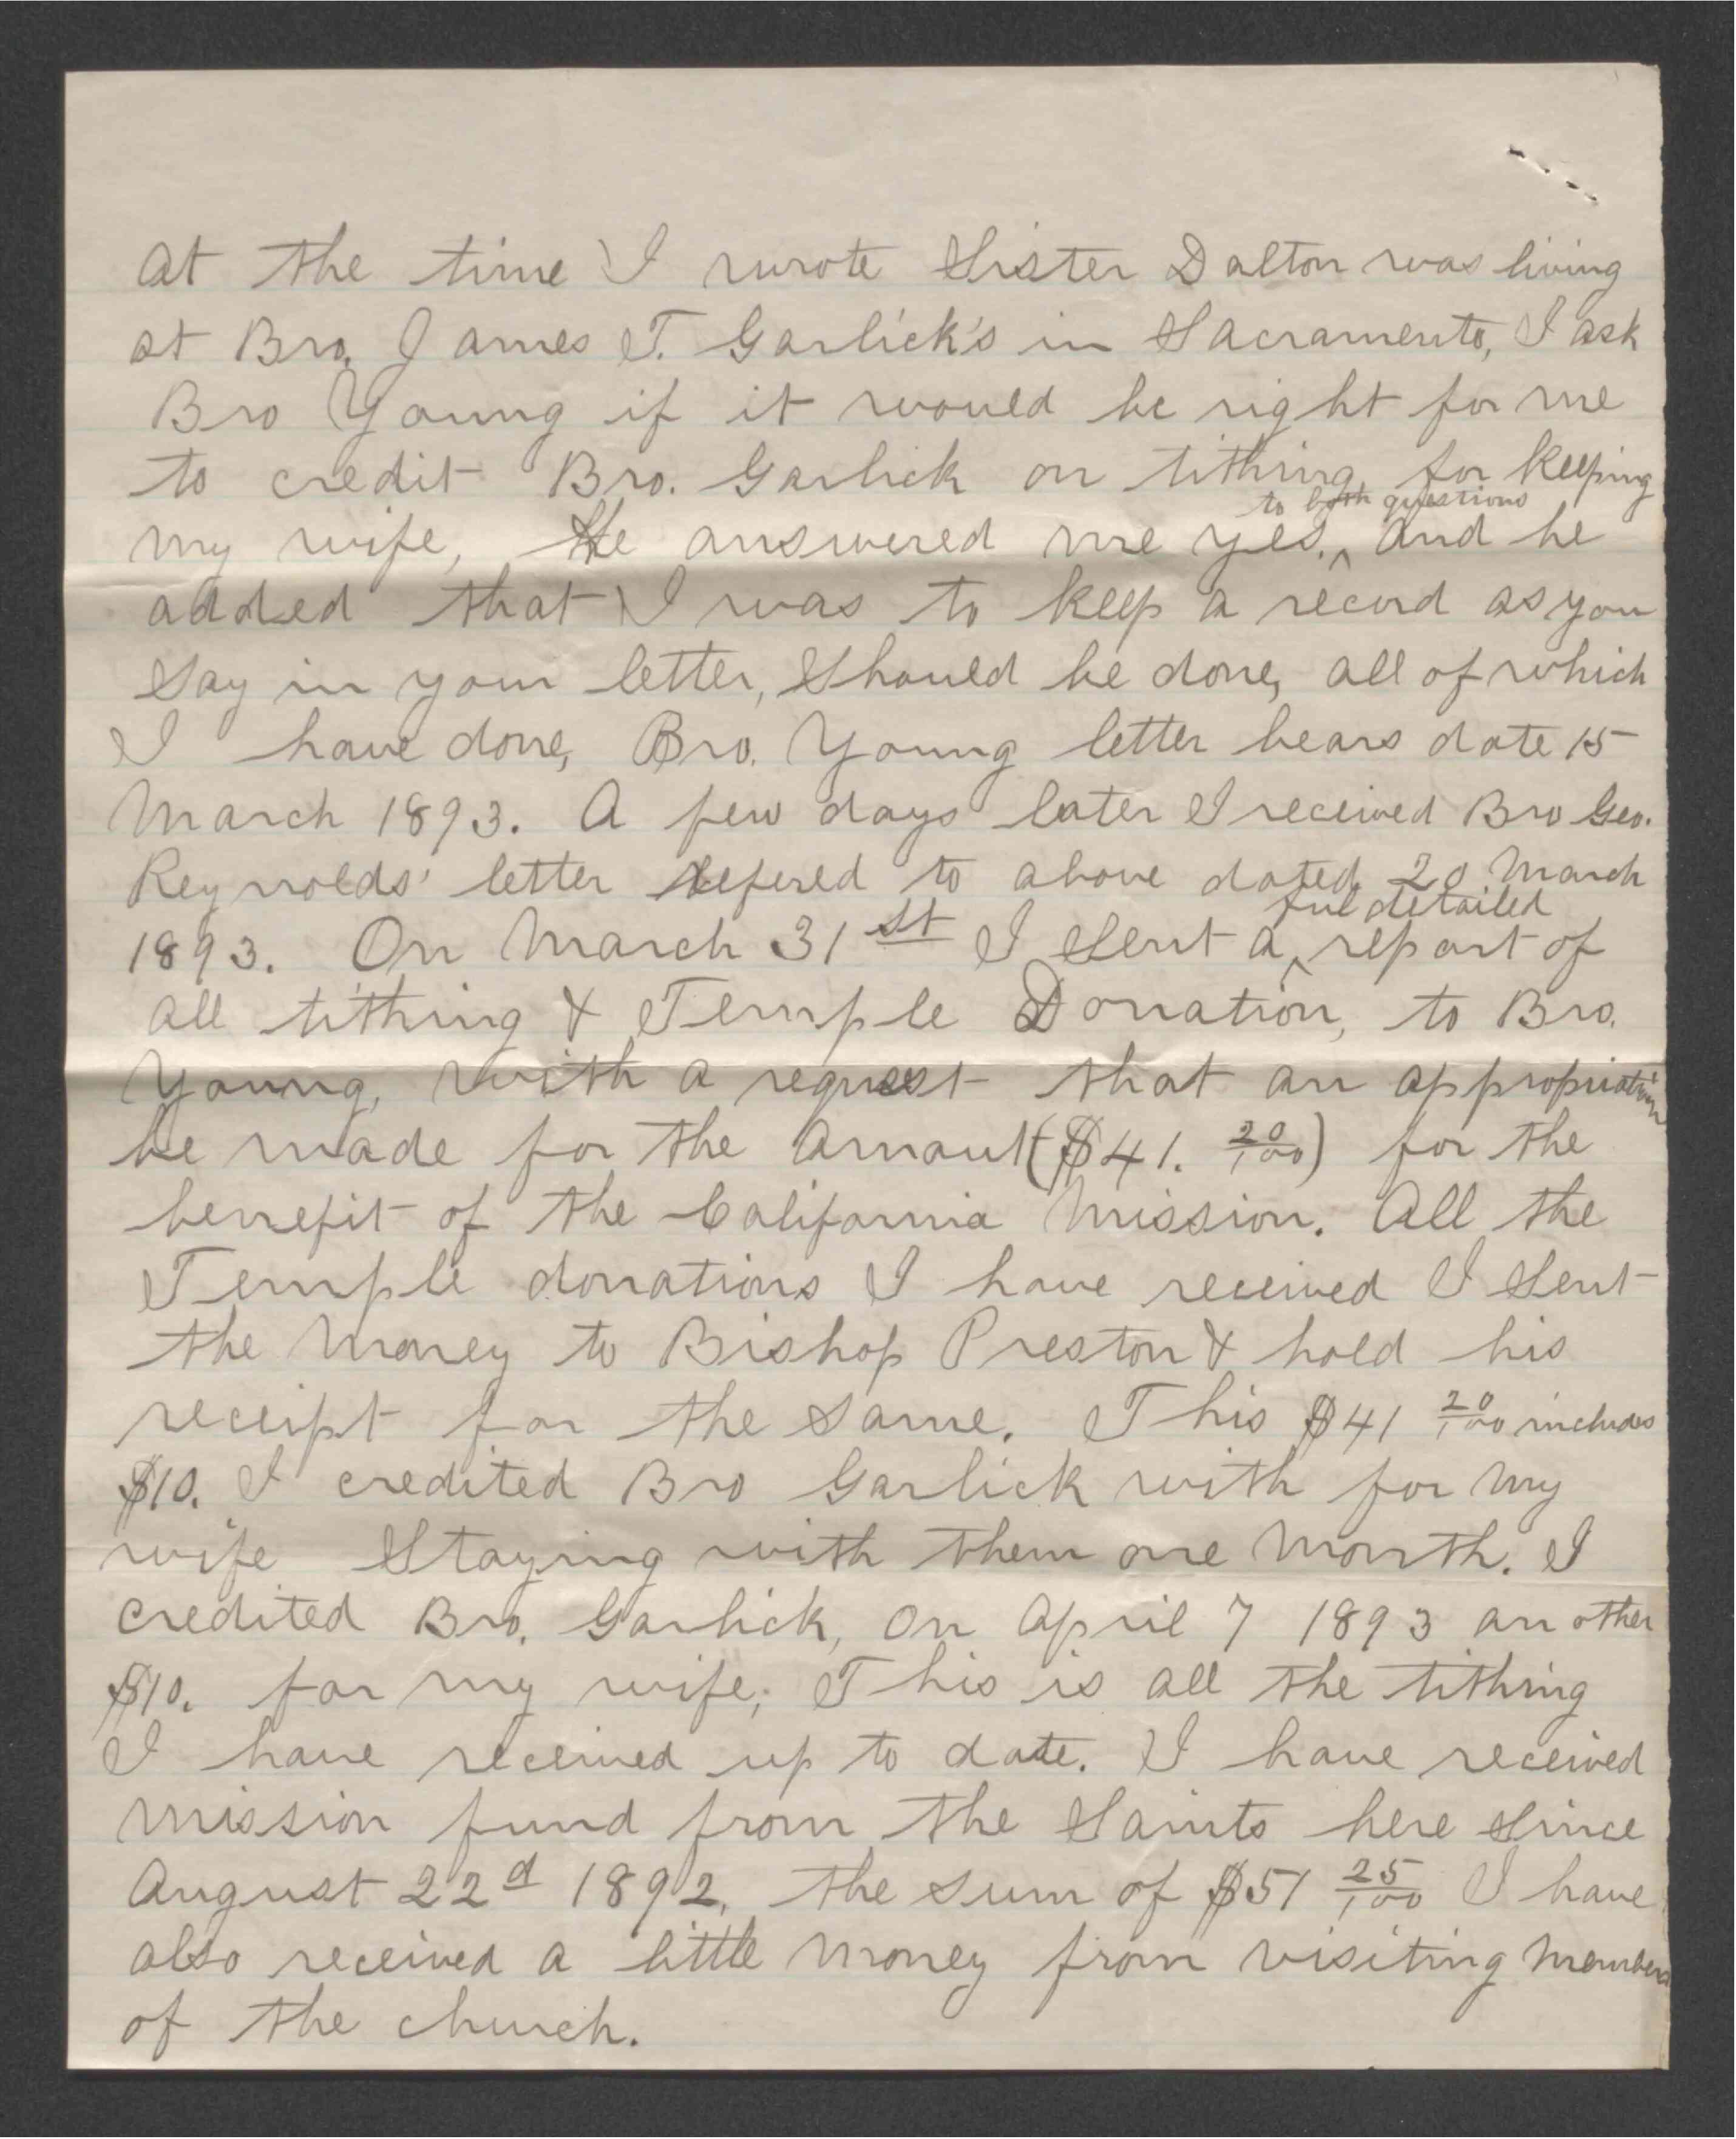 At the time I wrote Sister Dalton was living
at Bro. James T. Garlick's in Sacramento, I ask
Bro Young if it would be right for me
to credit Bro. Garlick on tithing for keeping
to both questions
my wife, He answered me yes.^ And he
added that I was to keep a record as you
Say in your letter, Should be done, all of which
I have done, Bro. Young letter bears date 15
March 1893. A few days later I received Bro Geo.
Reynolds' letter refered to above dated 20 March
full detailed
1893. On March 31st I Sent a^ report of
all tithing & Temple Donation, to Bro.
Young, with a request that an appropriation
be made for the Amount ($41. 20/100) for the
benefit of the California Mission. All the
Temple donations I have received I Sent
the Money to Bishop Preston & hold his
receipt for the Same. This $41 20/100 includes
$10. I credited Bro Garlick with for My
wife Staying with them one Month. I
credited Bro. Garlick, On April 7 1893 an other
$10. for my wife; This is all the tithing
I have received up to date. I have received
Mission fund from the Saints here Since
August 22d 1892, the Sum of $51 25/100 I have
also received a little Money from visiting Members
of the church.